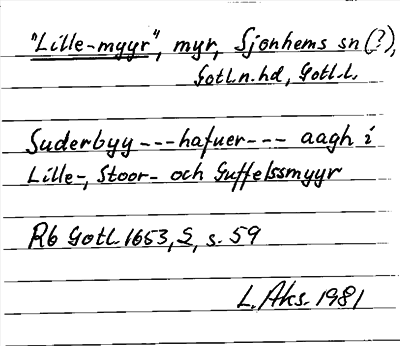 "Lille-myyr", myr, Sjonhems sn (?),
Gotl.n.hd, Gotl.l.
Suderbyy --- hafuer --- aagh i
Lille-, Stoor- och Guffelssmyyr
Rb Gotl. 1653, 2, s. 59
L. Aks. 1981